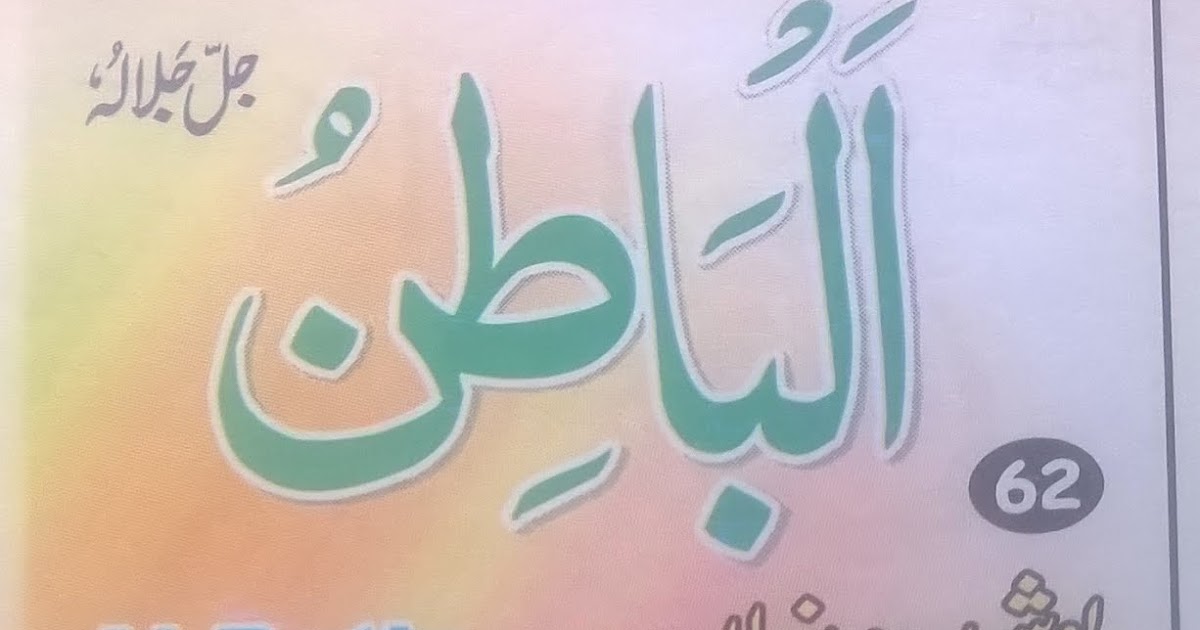 جلّ جَلالہُ،
اَلْبَاطِنُ
62